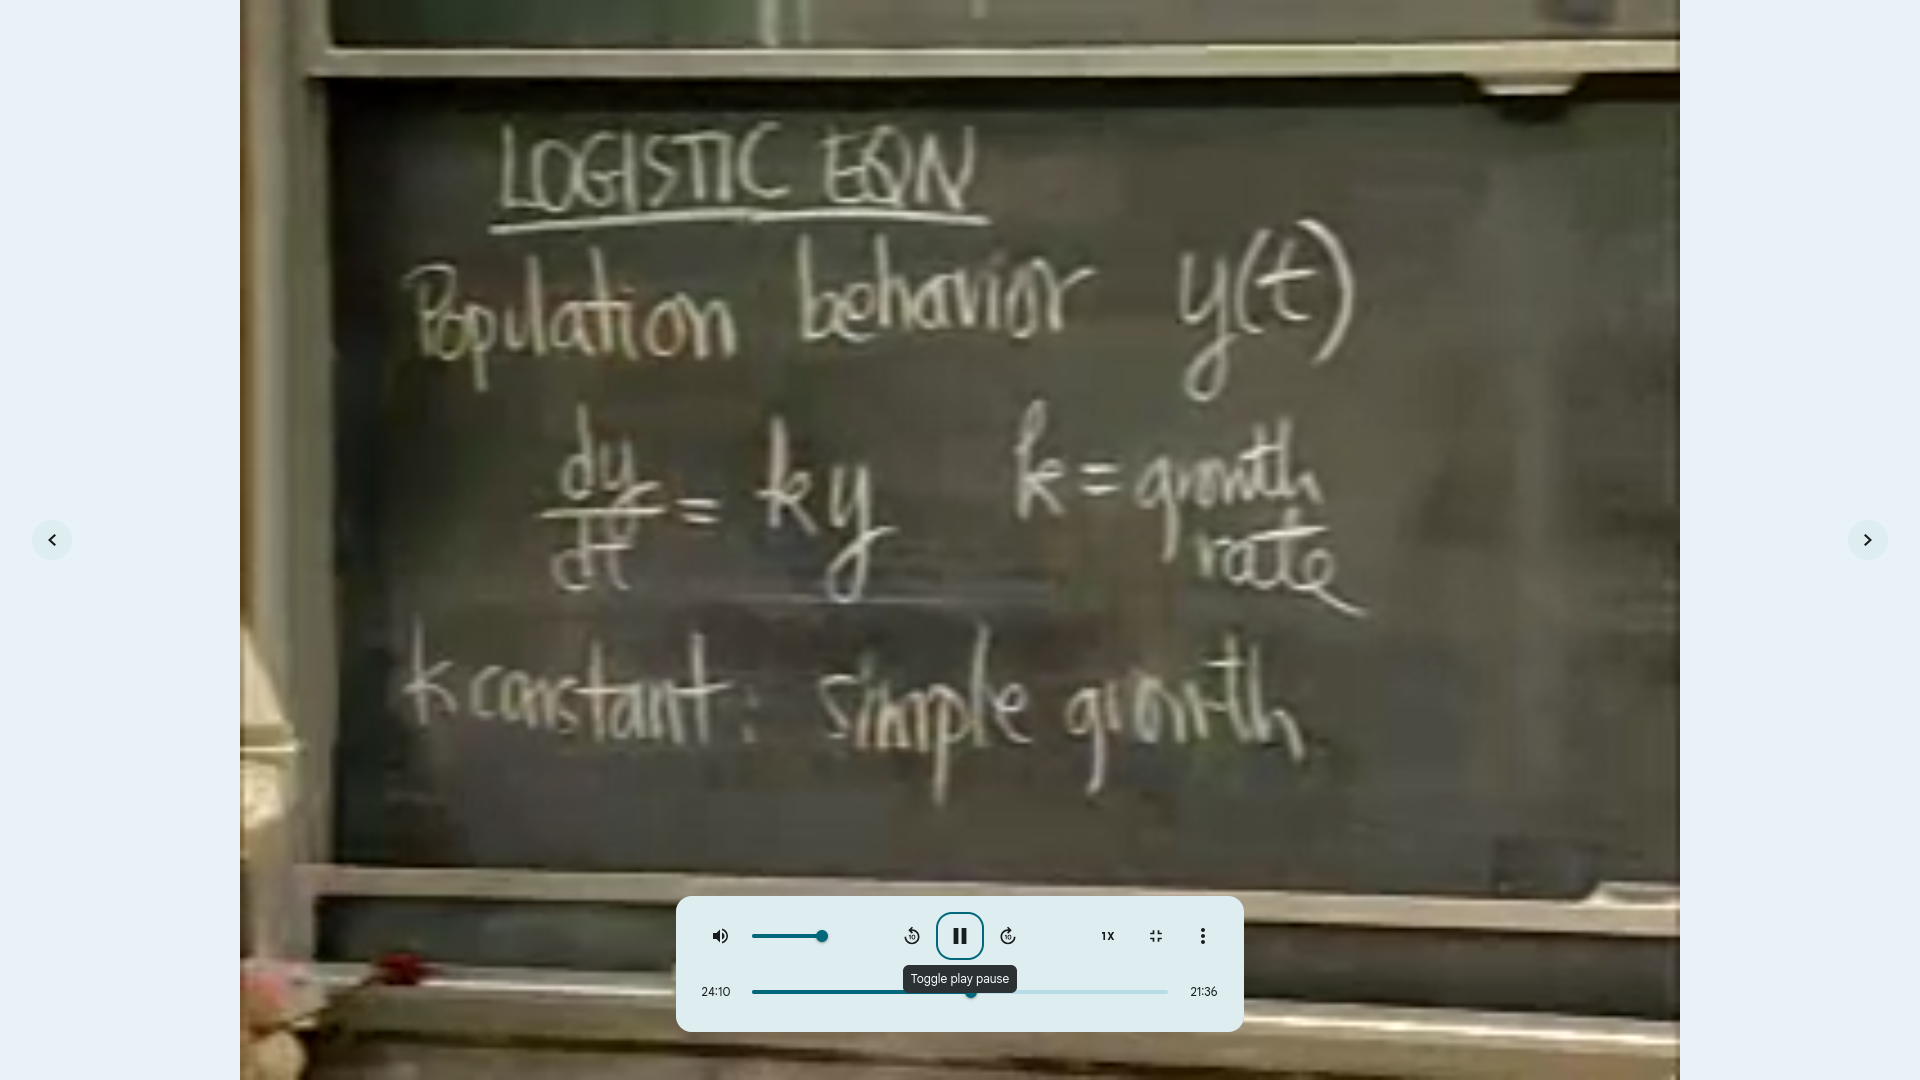 LOGISTIC EQN
Population behavior y(t)
dy/dt = ky k = growth rate
k constant: simple growth
10 10 1X
Toggle play pause
24:10 21:36